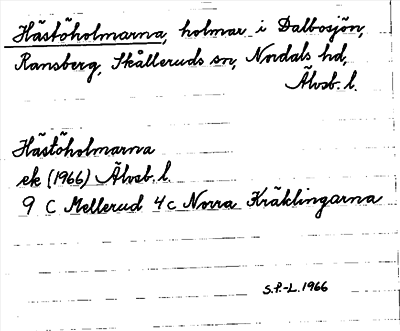 Hästöholmarna, holmar i Dalbosjön,
Ransberg, Skålleruds sn, Nordals hd,
Älvsb. l.
Hästöholmarna
ek (1966) Älvsb. l.
9 C Mellerud 4c Norra Kräklingarna
S.F.-L. 1966